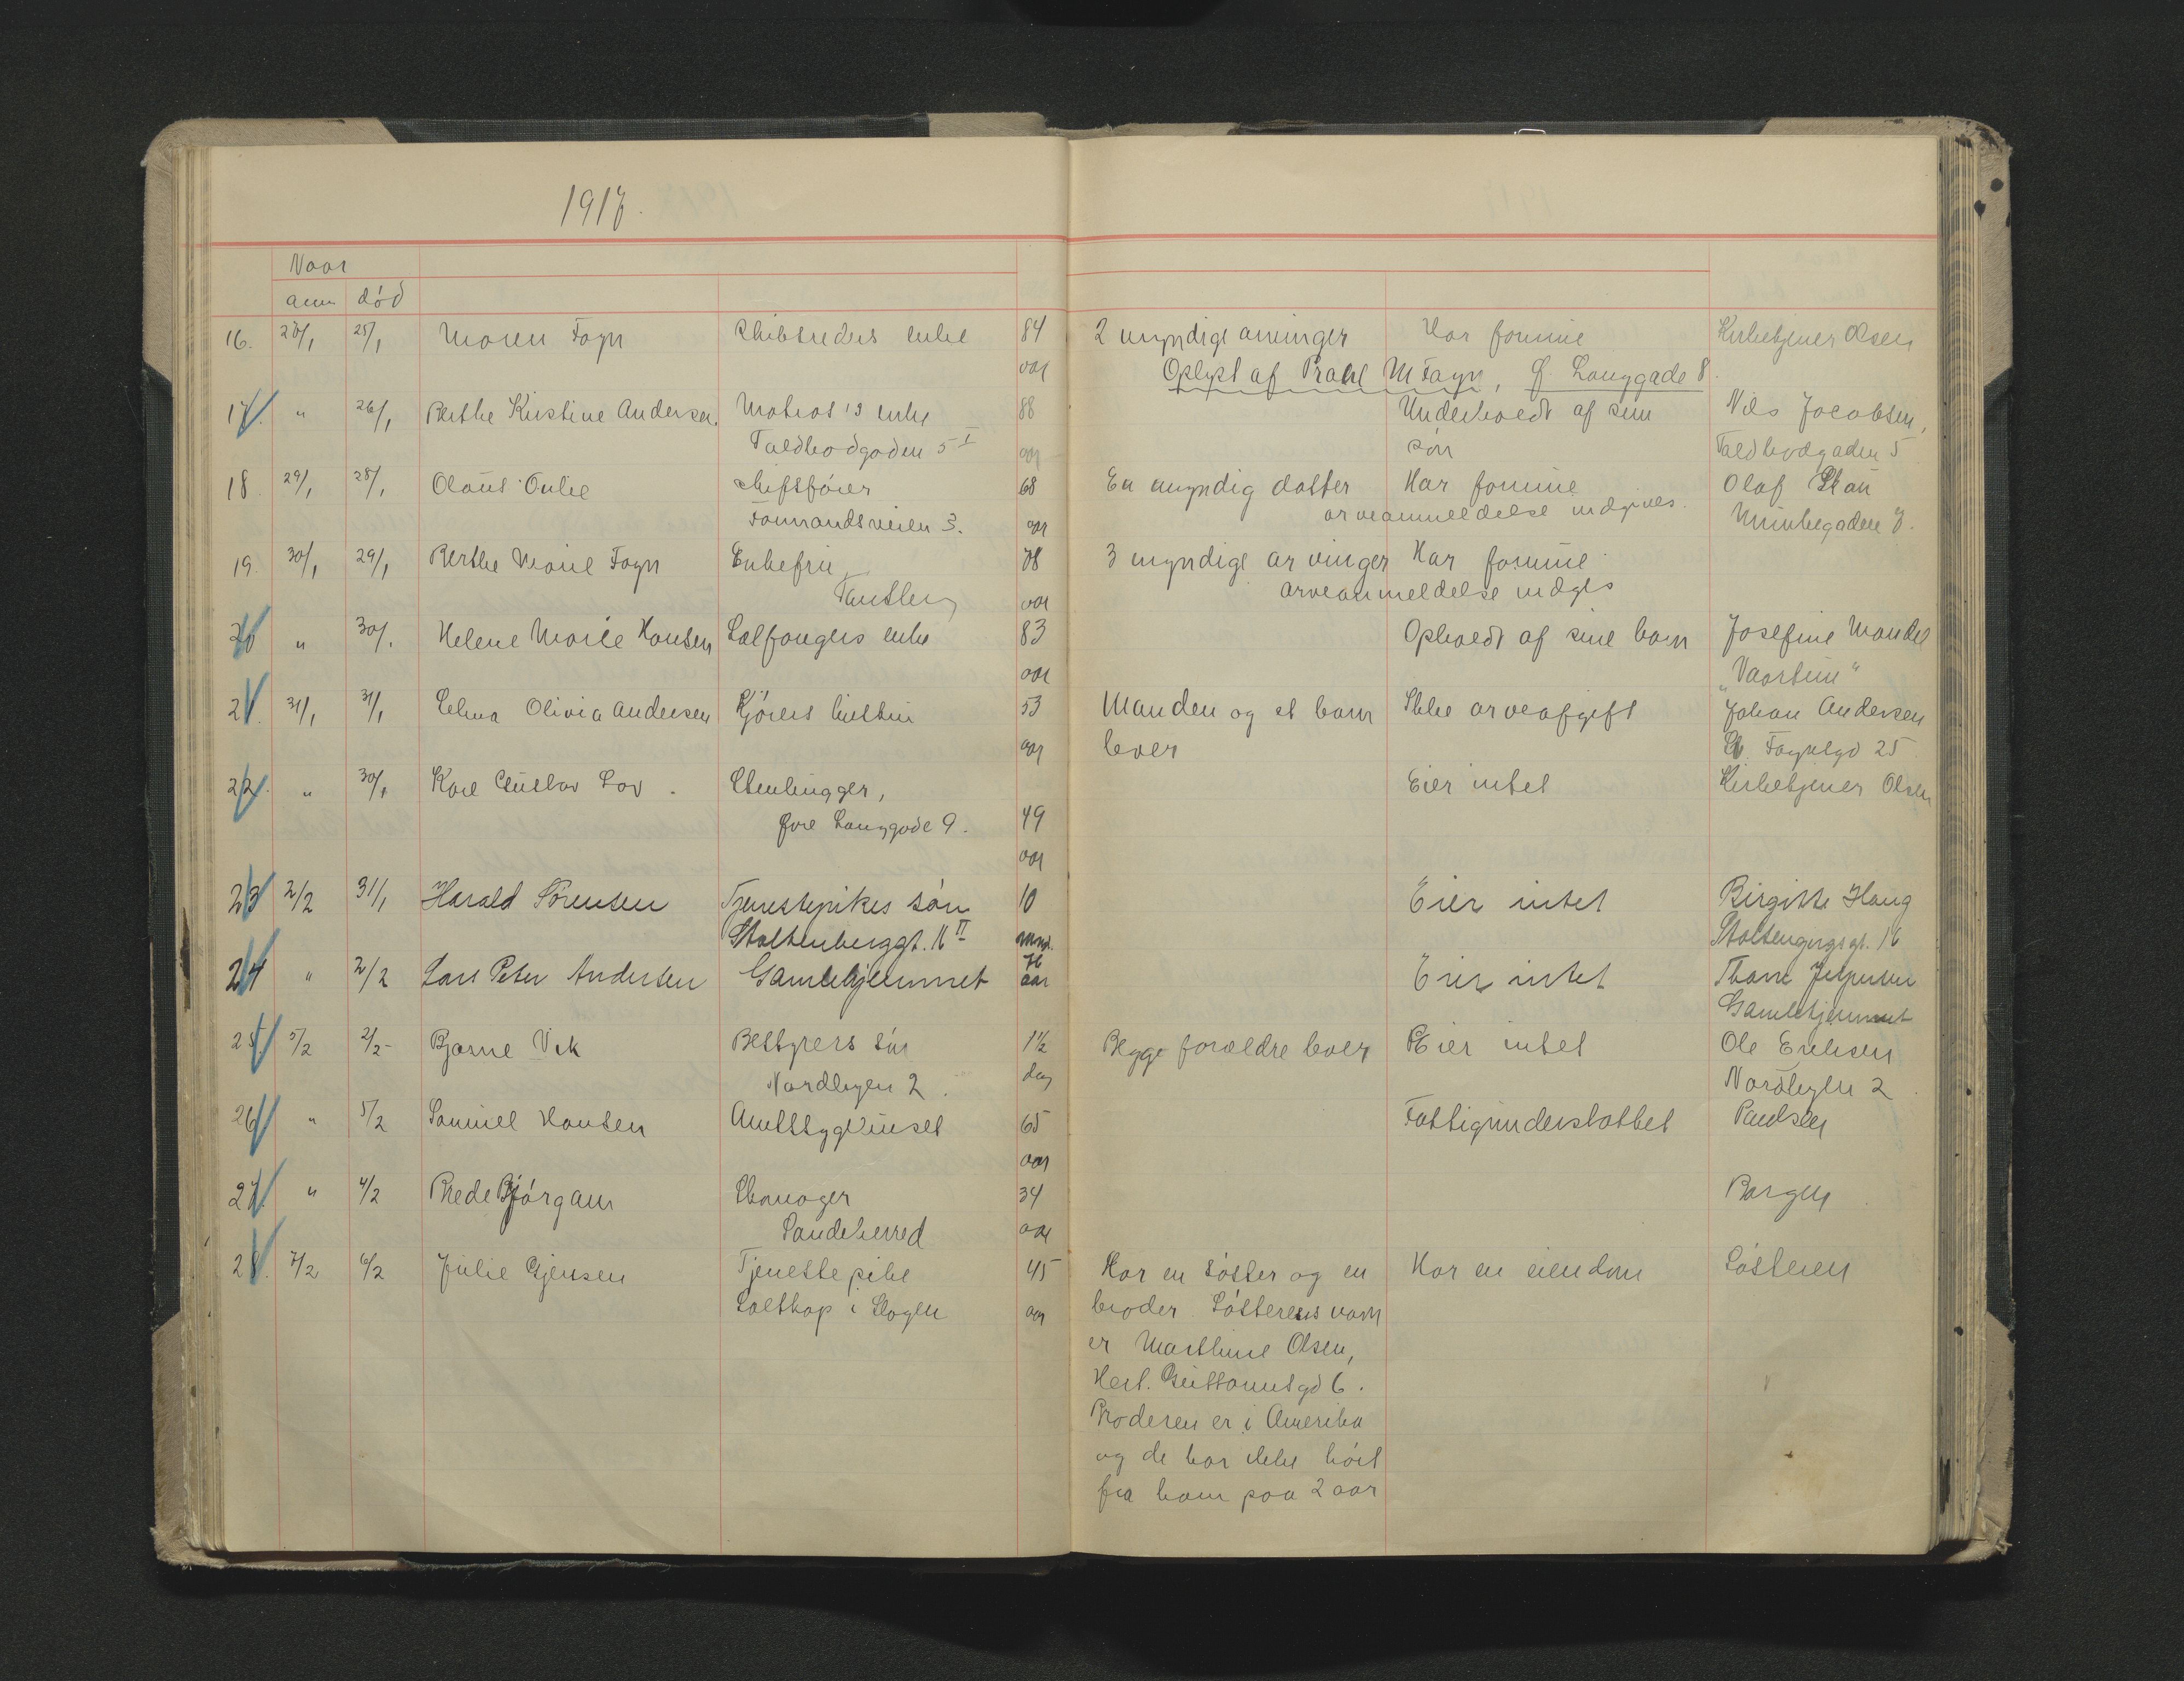 1917.
Naar
anm død
16. 26/1 25/1 Maren Fayn Skibsreders enke 84 2 myndige arvinger Har formue Kirketjener Olsen
aar Oplyst af M Fayn, Ø. Langgade 8.
17. " 26/1 Berthe Kirstine Andersen. Matros's enke 88 Underholdt af sin Nils Jacobsen,
Toldbodgaden 5 I aar søn Toldbodgaden 5
18. 29/1 28/1 Olaus Skifsfører 68 En myndig datter Har formue Olaf
3. aar arveanmeldelse indgives. Munkegaden 7.
19. 30/1 29/1 Berthe Marie Fayn Enkefru 78 3 myndige arvinger Har formue
aar arveanmeldelse indgis
20 " 30/1. Helene Marie Hansen Sælfangers enke 83 Opholdt af sine barn Josefine Mandel
aar "
21. 31/1 31/1 Olivia Andersen Kjørers hustru 53 Manden og et barn Ikke arveafgift Johan Andersen
aar lever 25
22. " 30/1 Karl Gustav Stenhugger, Eier intet Kirketjener Olsen
Øvre Langgade 9. 49
aar
23 2/2 31/1 Harald Sørensen Tjenestepikes søn 10 Eier intet Birgitte Haug
Stoltenberggt. 16 II mnd. 16
24 " 2/2 Lars Peter Andersen Gamlehjemmet 76 aar Eier intet Jespersen
Gamlehjemmet
25. 5/2 2/2- Bjarne Vik Bestyrers søn 1½ Begge forældre lever Eier intet Ole Eriksen
Nordbyen 2. dag Nordbyen 2.
26 " 5/2 Samuel Hansen Amtssygehuset 65 Fattigunderstøttet Paulsen
aar
27. " 4/2 Skomager 34 Borgen
Sandeherred aar
28. 7/2 6/2 Julie Gjersen Tjenestepike 45 Har en søster og en Har en eiendom Søsteren
i Skogen aar broder. Søsterens navn
er Marthine Olsen,
6.
Broderen er i Amerika
og de har ikke hørt
fra ham paa 2 aar